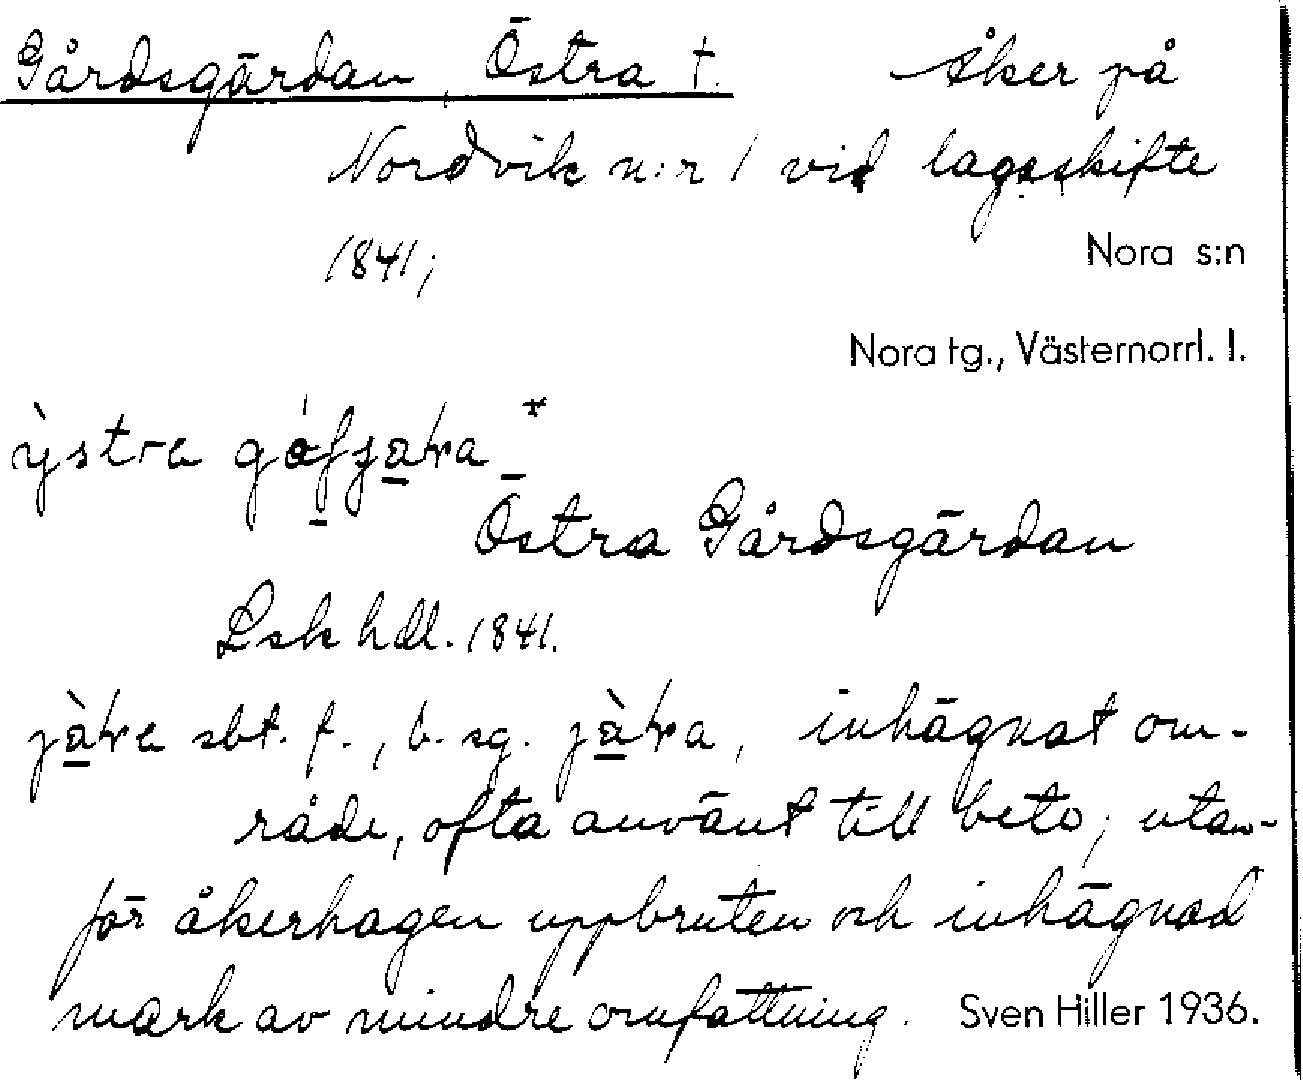 Gårdsgärdan, Östra †. Åker på
Nordvik n:r 1 vid lagaskifte
1841;
Nora s:n
Nora tg., Västernorrl. l.
ỳstra
Östra Gårdsgärdan
Lsk hdl. 1841.
sbt. f., b. sg. inhägnat om-
råde, ofta använt till bete; utan-
för åkerhagen uppbruten och inhägnad
mark av mindre omfattning. Sven Hiller 1936.